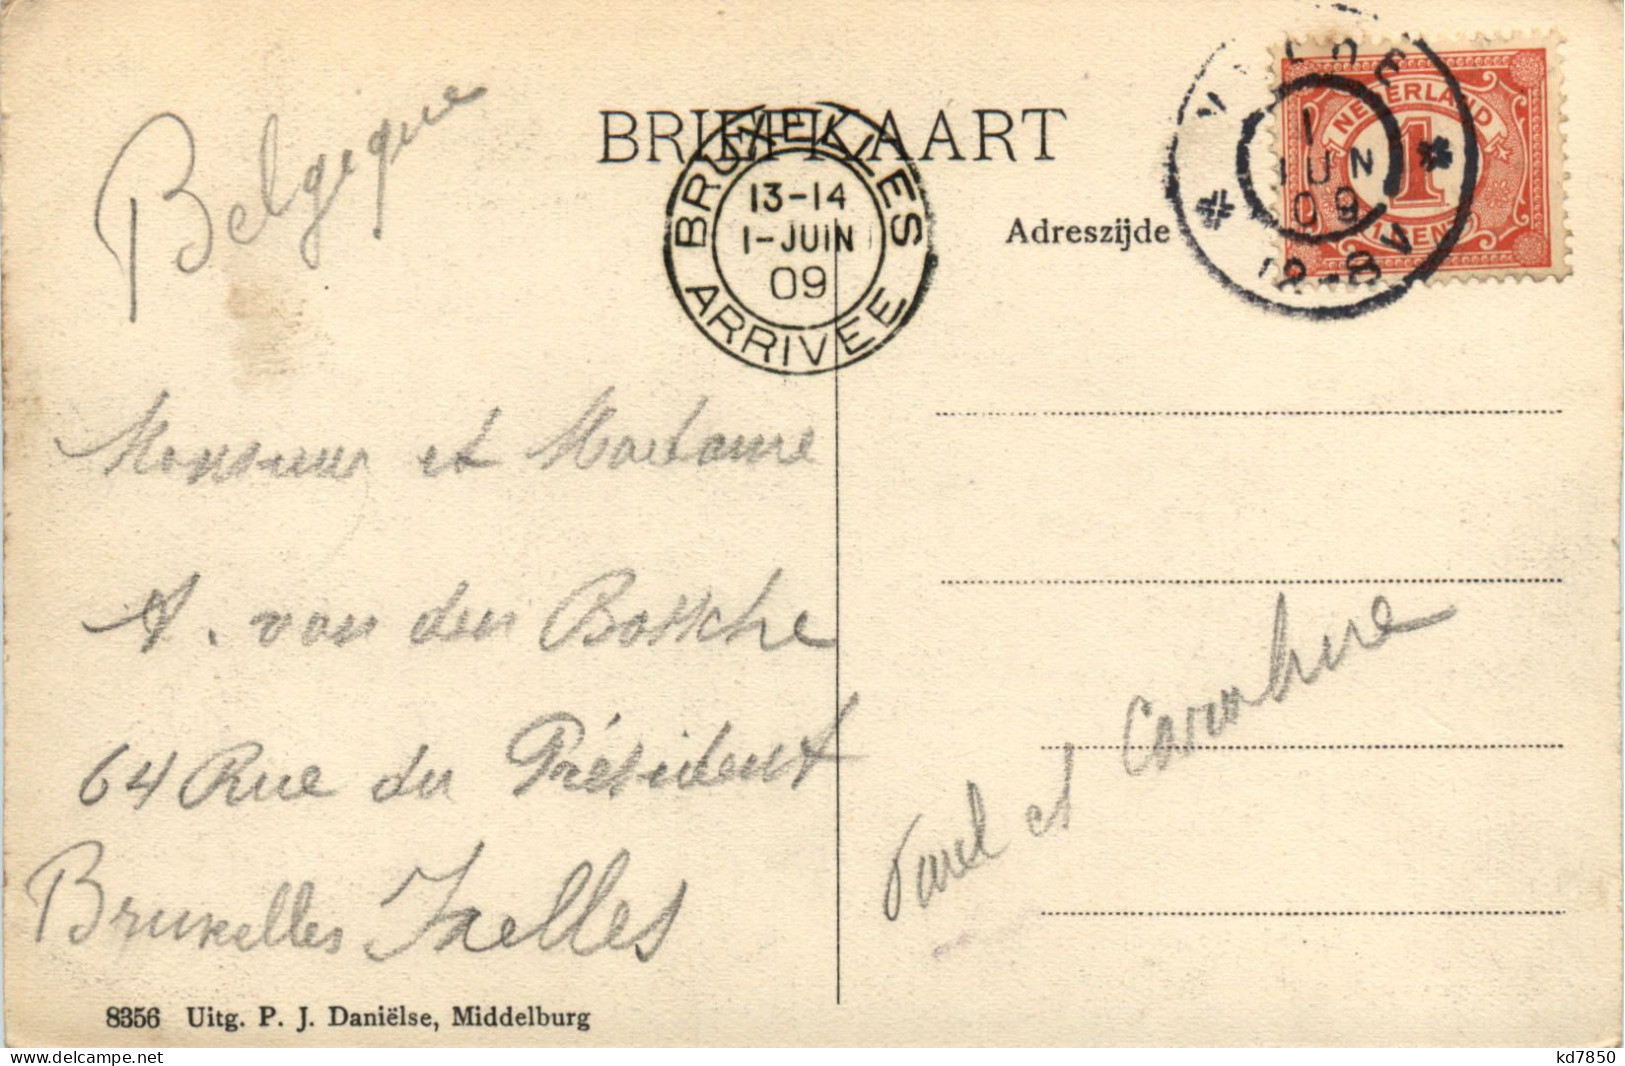 Belgique
BRIEFKAART
BRUXELLES
13-14
1-JUIN
09
ARRIVEE
Adreszijde
1
JUN
09
NEDERLAND
1
CENT
Monsieur et Madame
A. van den Bossche
64 Rue du Président
Bruxelles Ixelles
et Caroline
8356 Uitg. P. J. Daniëlse, Middelburg
www.delcampe.net
kd7850